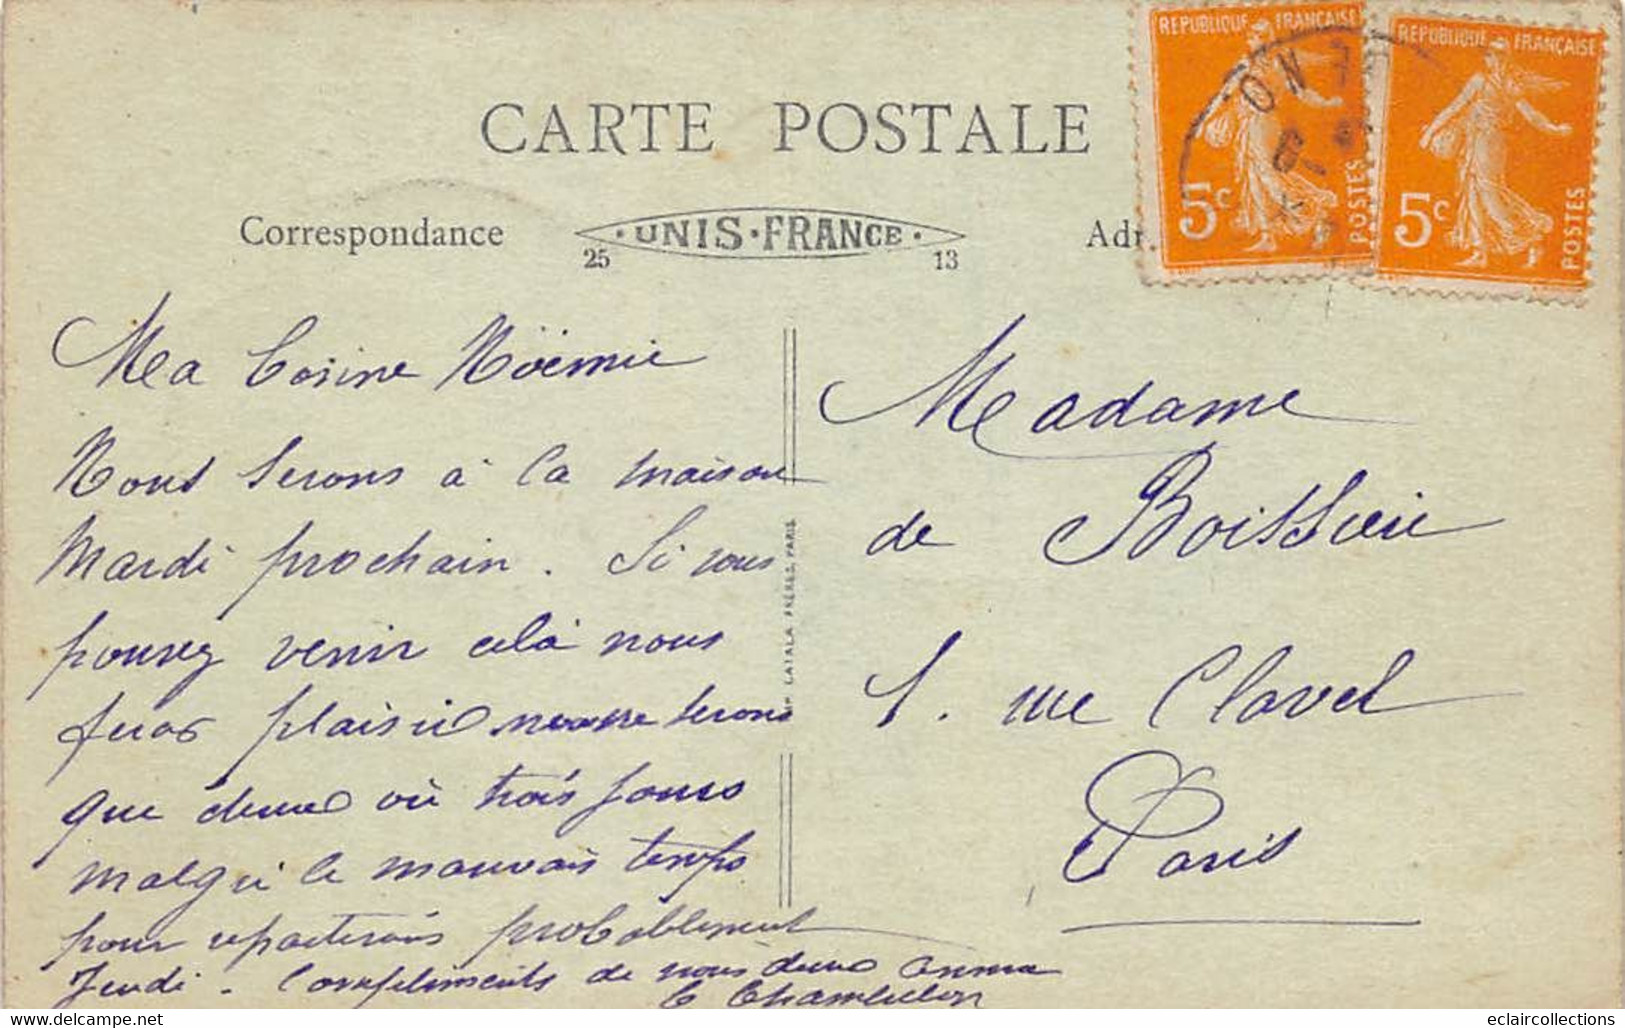 CARTE POSTALE
Correspondance
UNIS · FRANCE
25 13
Adr
REPUBLIQUE FRANÇAISE
5c
POSTES
REPUBLIQUE FRANÇAISE
5c
POSTES
Ma Cosine Nöemie
Nous Serons à la maison
Mardi prochain. Si vous
pouvez venir celà nous
feras plaisir serons
que deux où trois jours
malgré le mauvais temps
pour reparterons probablement
Jeudi. Compliments de nous deux Anna
Madame
de Boissieu
1. rue Clavel
Paris
CATALA FRÈRES, PARIS
Delcampe.net
eclaircollections